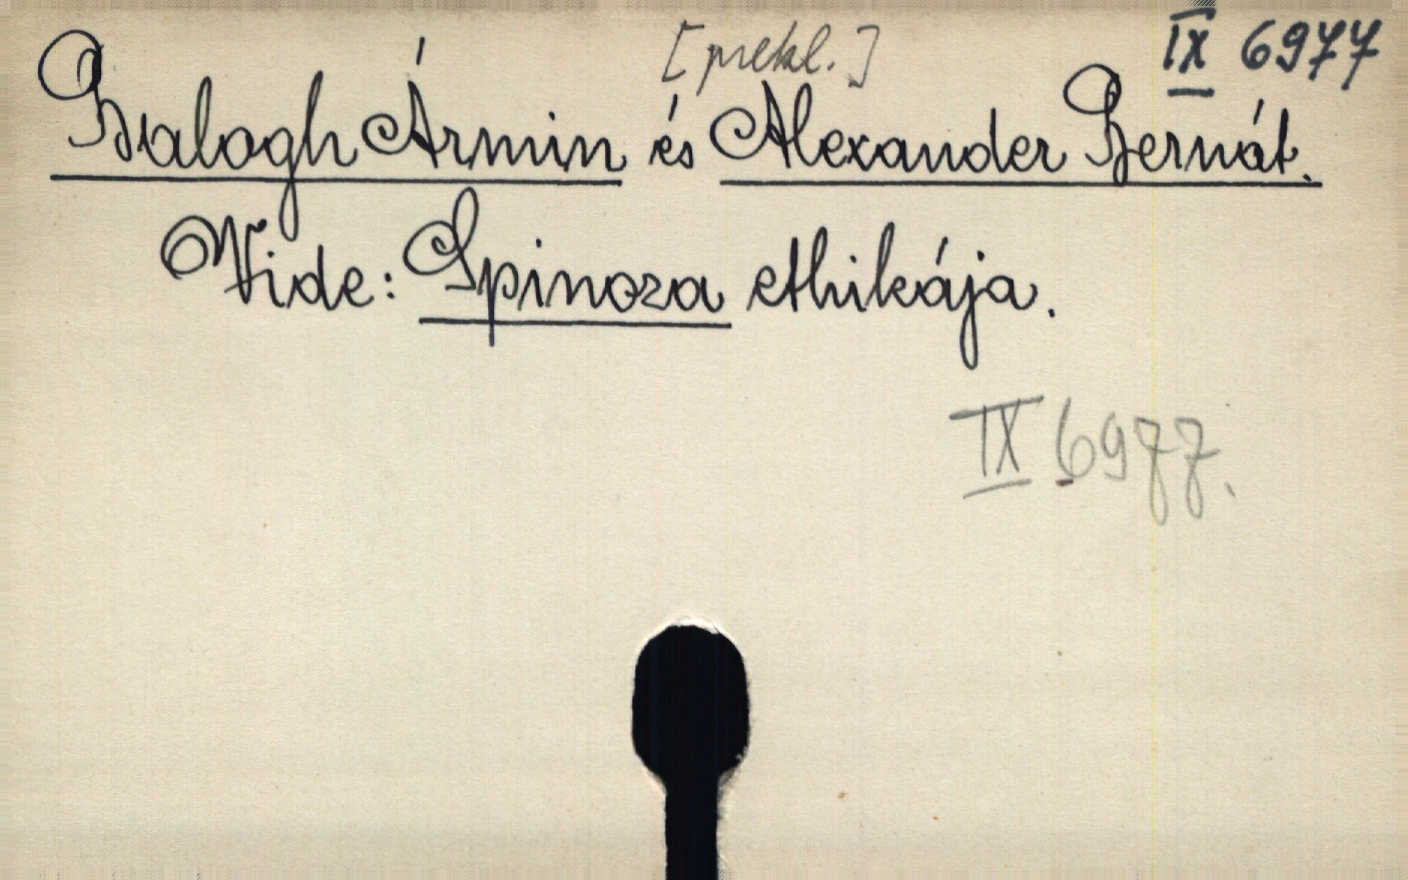 [prekl.] IX 6977
Balogh Ármin és Alexander Bernát.
Vide: Spinoza ethikája.
IX 6977.